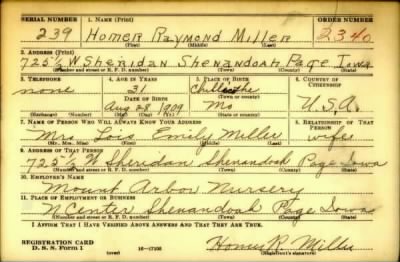 SERIAL NUMBER 1. NAME (Print) ORDER NUMBER
239 Homer Raymond Miller 2340
(First) (Middle) (Last)
2. ADDRESS (Print)
725½ W Sheridan Shenandoah Page Iowa
(Number and street or R. F. D. number) (Town) (County) (State)
3. TELEPHONE 4. AGE IN YEARS 5. PLACE OF BIRTH 6. COUNTRY OF CITIZENSHIP
none 31 Chillicothe
DATE OF BIRTH (Town or county)
Aug 28 1909 Mo U.S.A.
(Exchange) (Number) (Mo.) (Day) (Yr.) (State or country)
7. NAME OF PERSON WHO WILL ALWAYS KNOW YOUR ADDRESS 8. RELATIONSHIP OF THAT PERSON
Mrs Lois Emily Miller wife
(Mr., Mrs., Miss) (First) (Middle) (Last)
9. ADDRESS OF THAT PERSON
725½ W Sheridan Shenandoah Page Iowa
(Number and street or R. F. D. number) (Town) (County) (State)
10. EMPLOYER'S NAME
Mount Arbor Nursery
11. PLACE OF EMPLOYMENT OR BUSINESS
N Center Shenandoah Page Iowa
(Number and street or R. F. D. number) (Town) (County) (State)
I AFFIRM THAT I HAVE VERIFIED ABOVE ANSWERS AND THAT THEY ARE TRUE.
REGISTRATION CARD
D. S. S. FORM 1 (over) 16—17105 Homer R. Miller
(Registrant's signature)